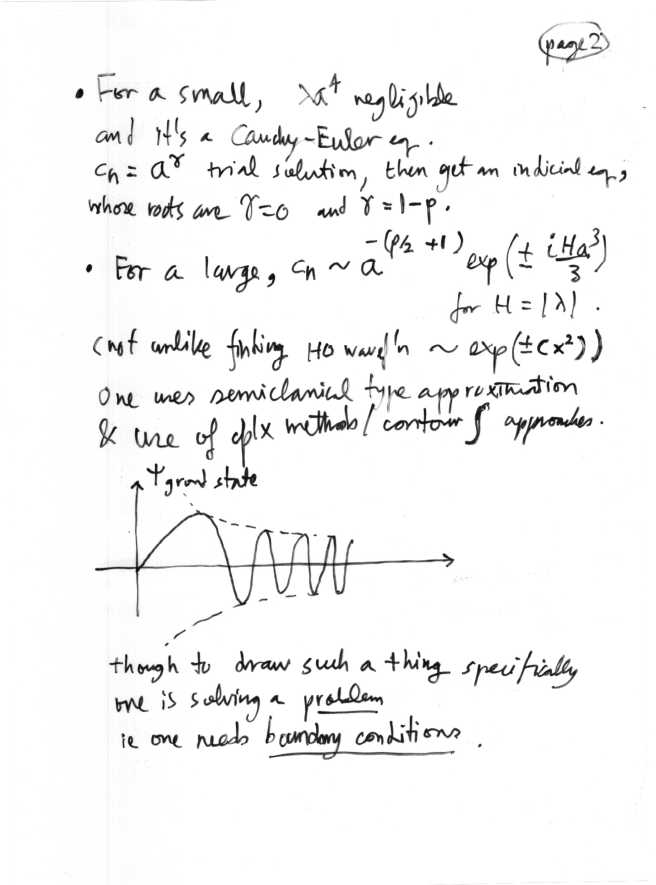 page 2
• For a small, λa⁴ negligible
and it's a Cauchy-Euler eq.
cₙ = a^γ trial solution, then get an indicial eq,
whose roots are γ=0 and γ=1-p.
• For a large, cₙ ~ a^{-(p/2 +1)} exp(± iHa³/3)
for H = |λ|.
(not unlike finding HO wavef'n ~ exp(±Cx²))
One uses semiclassical type approximation
& use of cplx methods / contour ∫ approaches.
Ψ ground state
though to draw such a thing specifically
one is solving a problem
ie one needs boundary conditions.